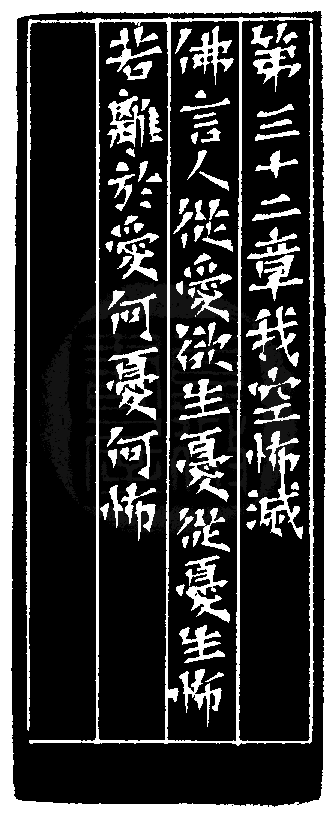 第三十二章我空怖滅
佛言人從愛欲生憂從憂生怖
若離於愛何憂何怖